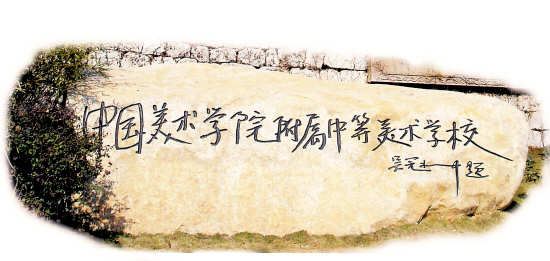 中国美术学院附属中等美术学校
吴冠中题